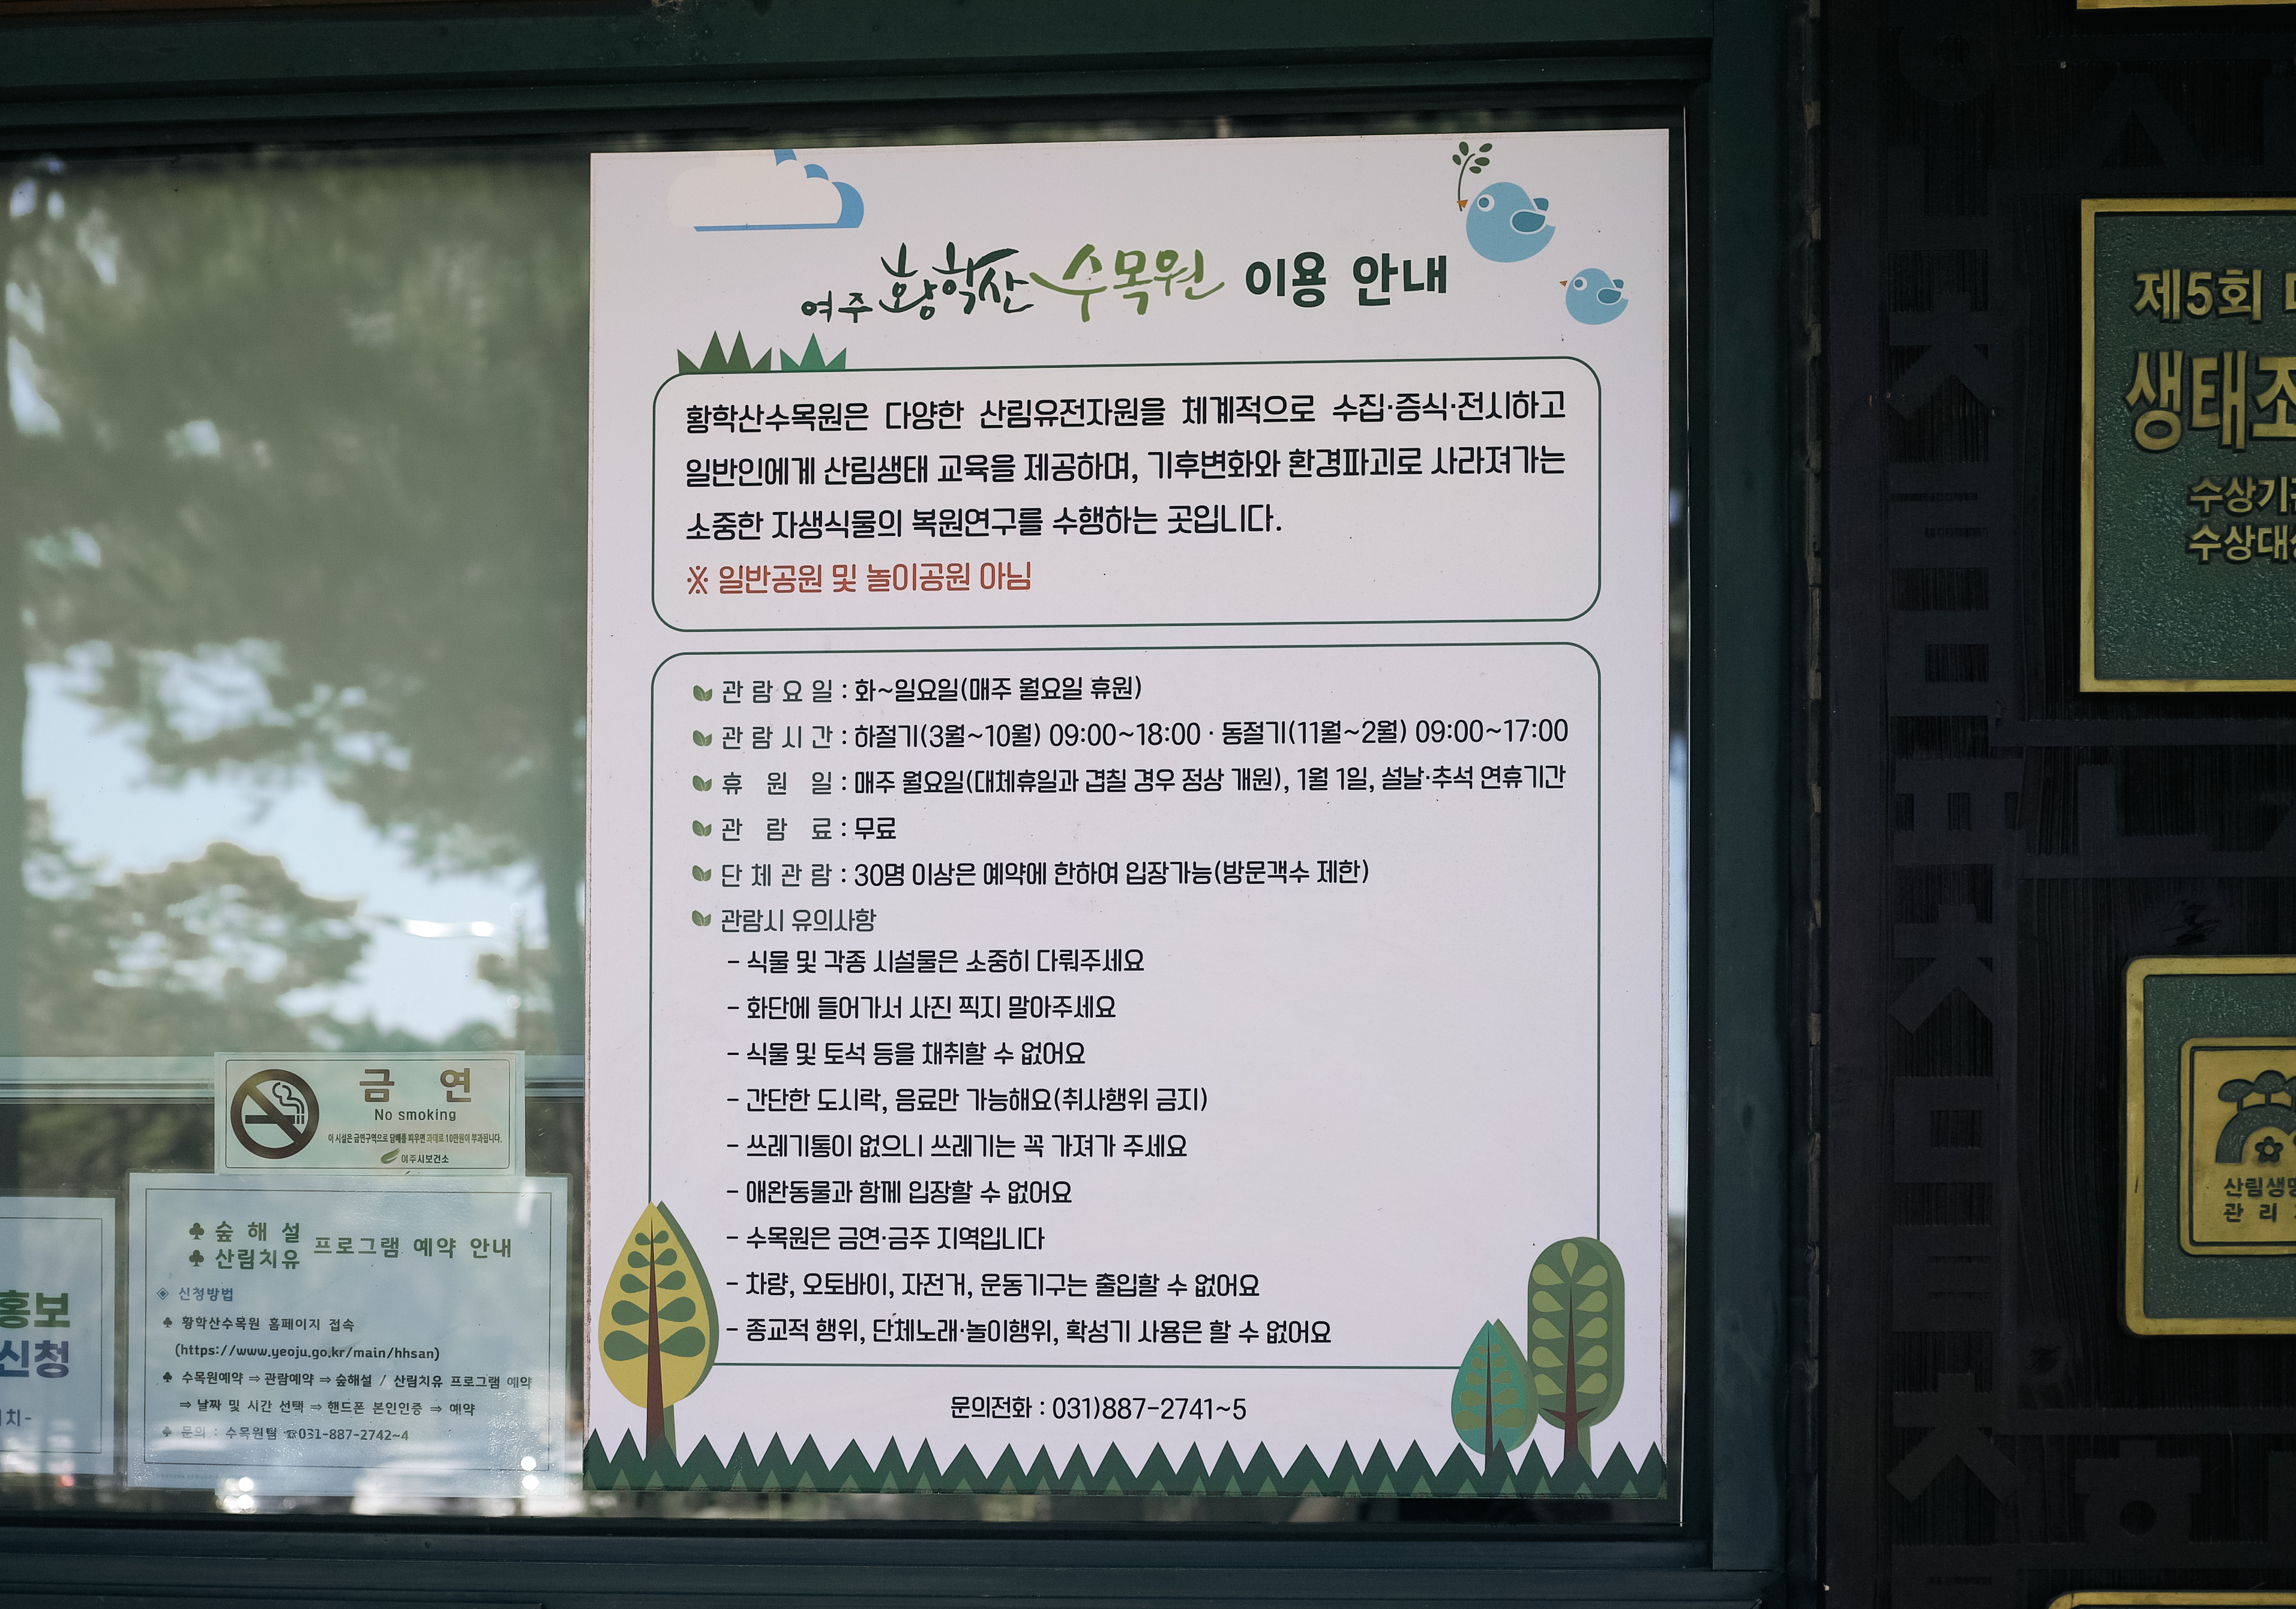 여주 황학산 수목원 이용 안내
황학산수목원은 다양한 산림유전자원을 체계적으로 수집·증식·전시하고
일반인에게 산림생태 교육을 제공하며, 기후변화와 환경파괴로 사라져가는
소중한 자생식물의 복원연구를 수행하는 곳입니다.
※ 일반공원 및 놀이공원 아님
관람요일 : 화~일요일(매주 월요일 휴원)
관람시간 : 하절기(3월~10월) 09:00~18:00 · 동절기(11월~2월) 09:00~17:00
휴원일 : 매주 월요일(대체휴일과 겹칠 경우 정상 개원), 1월 1일, 설날·추석 연휴기간
관람료 : 무료
단체관람 : 30명 이상은 예약에 한하여 입장가능(방문객수 제한)
관람시 유의사항
- 식물 및 각종 시설물은 소중히 다뤄주세요
- 화단에 들어가서 사진 찍지 말아주세요
- 식물 및 토석 등을 채취할 수 없어요
- 간단한 도시락, 음료만 가능해요(취사행위 금지)
- 쓰레기통이 없으니 쓰레기는 꼭 가져가 주세요
- 애완동물과 함께 입장할 수 없어요
- 수목원은 금연·금주 지역입니다
- 차량, 오토바이, 자전거, 운동기구는 출입할 수 없어요
- 종교적 행위, 단체노래·놀이행위, 확성기 사용은 할 수 없어요
문의전화 : 031)887-2741~5
금 연
No smoking
이 시설은 금연구역으로 담배를 피우면 과태료 10만원이 부과됩니다.
여주시보건소
♣ 숲 해 설
♣ 산림치유 프로그램 예약 안내
◈ 신청방법
♣ 황학산수목원 홈페이지 접속
(https://www.yeoju.go.kr/main/hhsan)
♣ 수목원예약 ⇒ 관람예약 ⇒ 숲해설 / 산림치유 프로그램 예약
⇒ 날짜 및 시간 선택 ⇒ 핸드폰 본인인증 ⇒ 예약
♣ 문의 : 수목원팀 ☎031-887-2742~4
홍보
신청
치-
제5회
생태조
수상기관
수상대상
산림생명
관 리